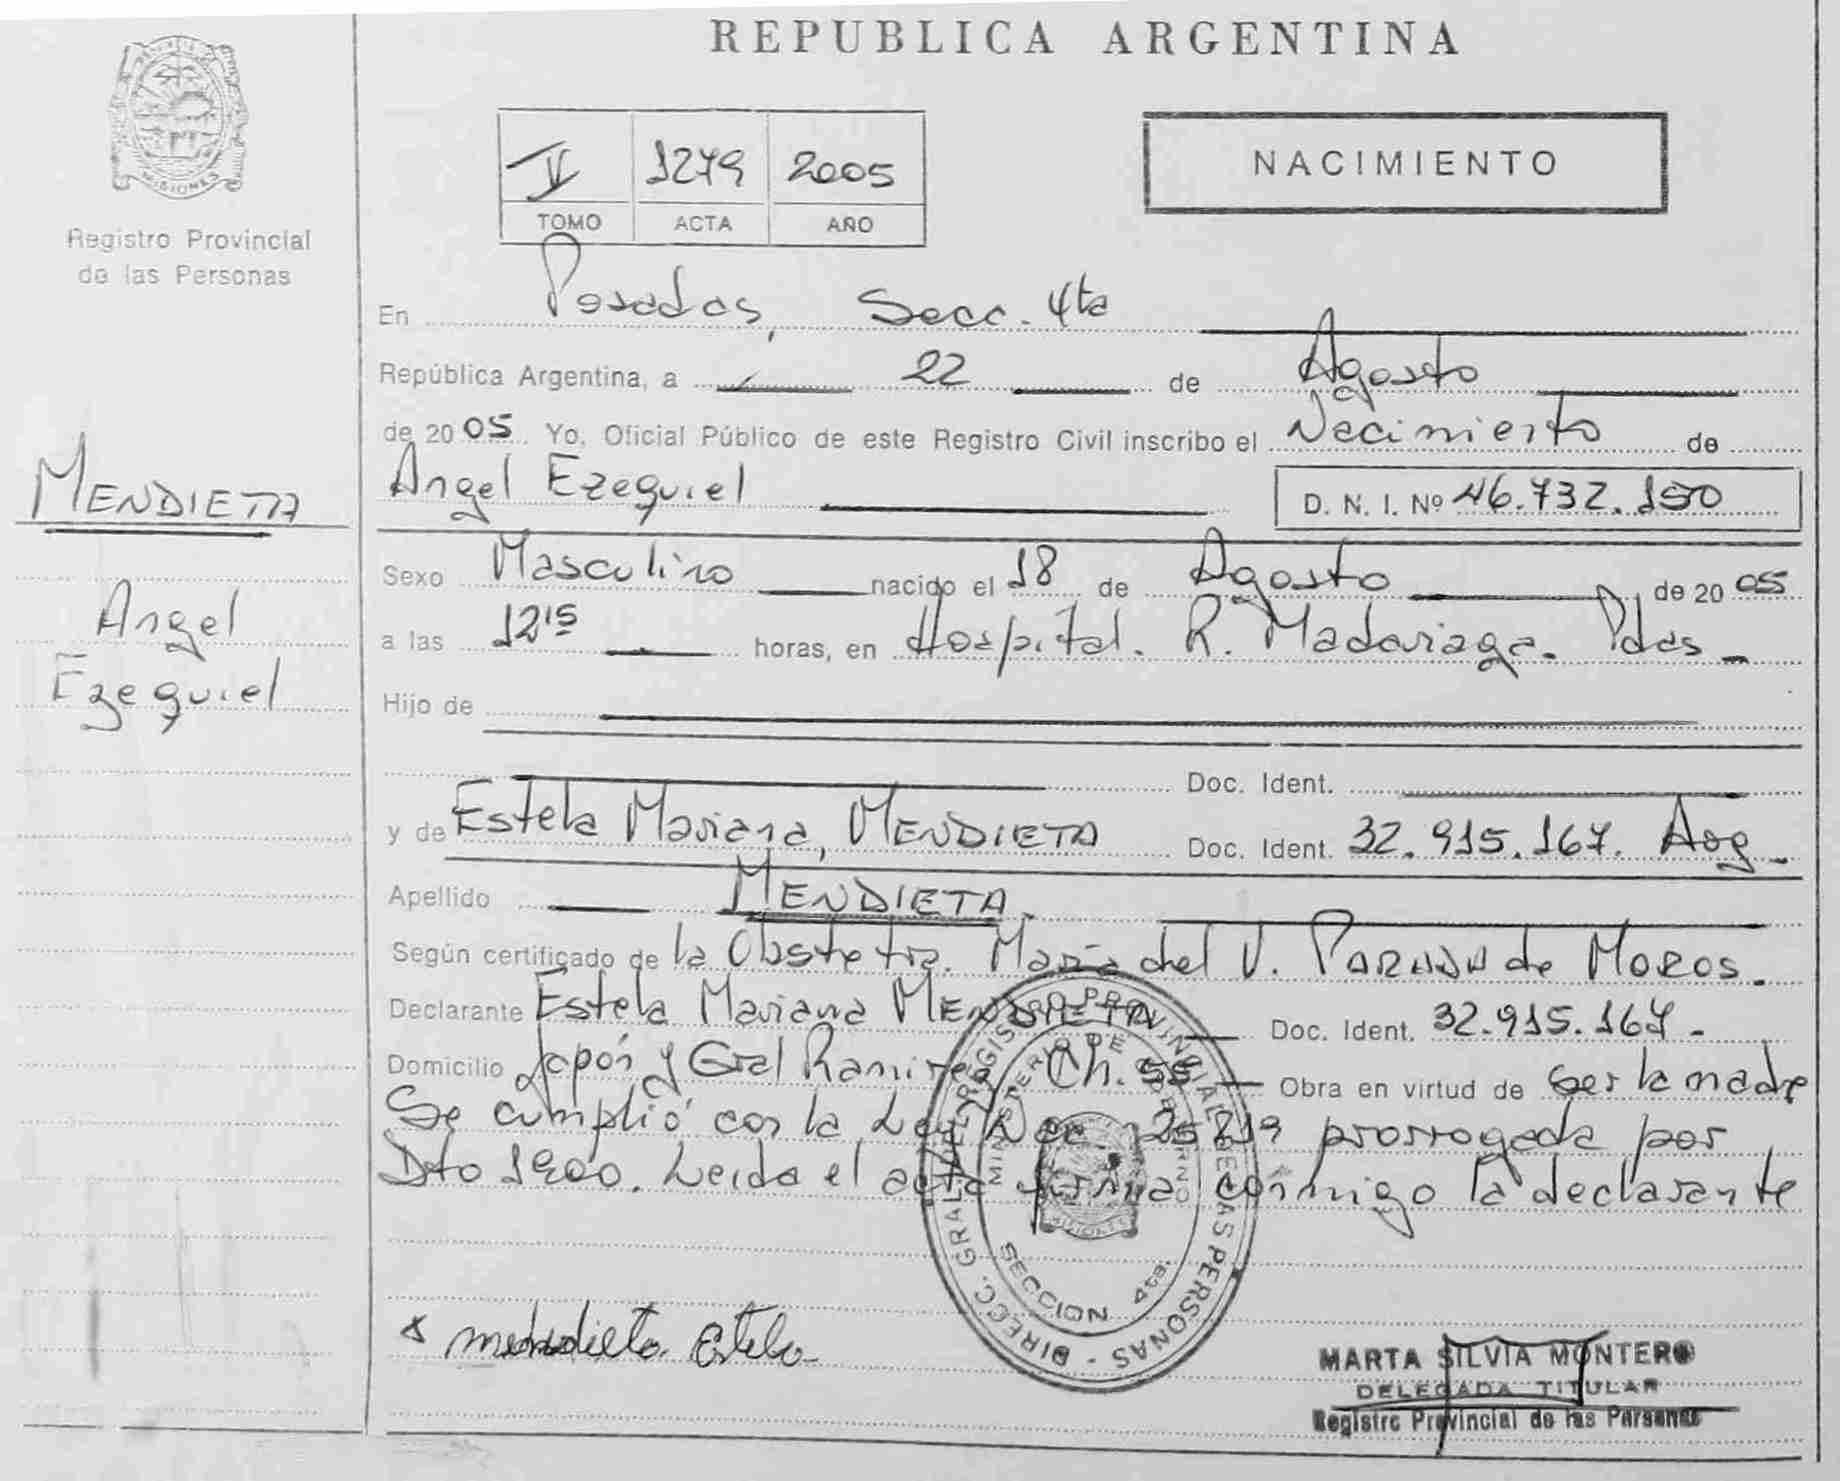 REPUBLICA ARGENTINA
MISIONES
Registro Provincial
de las Personas
MENDIETA
Angel
Ezequiel
V 1279 2005
TOMO ACTA AÑO
NACIMIENTO
En Posadas, Secc. 4ta
República Argentina, a 22 de Agosto
de 2005 Yo, Oficial Público de este Registro Civil inscribo el Nacimiento de
Angel Ezequiel D. N. I. Nº 46.732.150
Sexo Masculino nacido el 18 de Agosto de 2005
a las 12 15 horas, en Hospital. R. Madariaga. Pdas
Hijo de
Doc. Ident.
y de Estela Mariana, MENDIETA Doc. Ident. 32.915.167. Arg
Apellido MENDIETA
Según certificado de la Obstetra. María del V. de MOROS.
Declarante Estela Mariana MENDIETA Doc. Ident. 32.915.167
Domicilio Japón y Gral Ramirez Ch. 55 Obra en virtud de ser la madre
Se cumplió con la Ley Nac 25819 prorrogada por
Dto 1900. Leida el acta firma conmigo la declarante
DIRECC. GRAL. DEL REGISTRO PROVINCIAL DE LAS PERSONAS
MINISTERIO DE GOBIERNO
MISIONES
SECCION 4ta.
x mendieta Estela
MARTA SILVIA MONTERO
DELEGADA TITULAR
Registro Provincial de las Personas